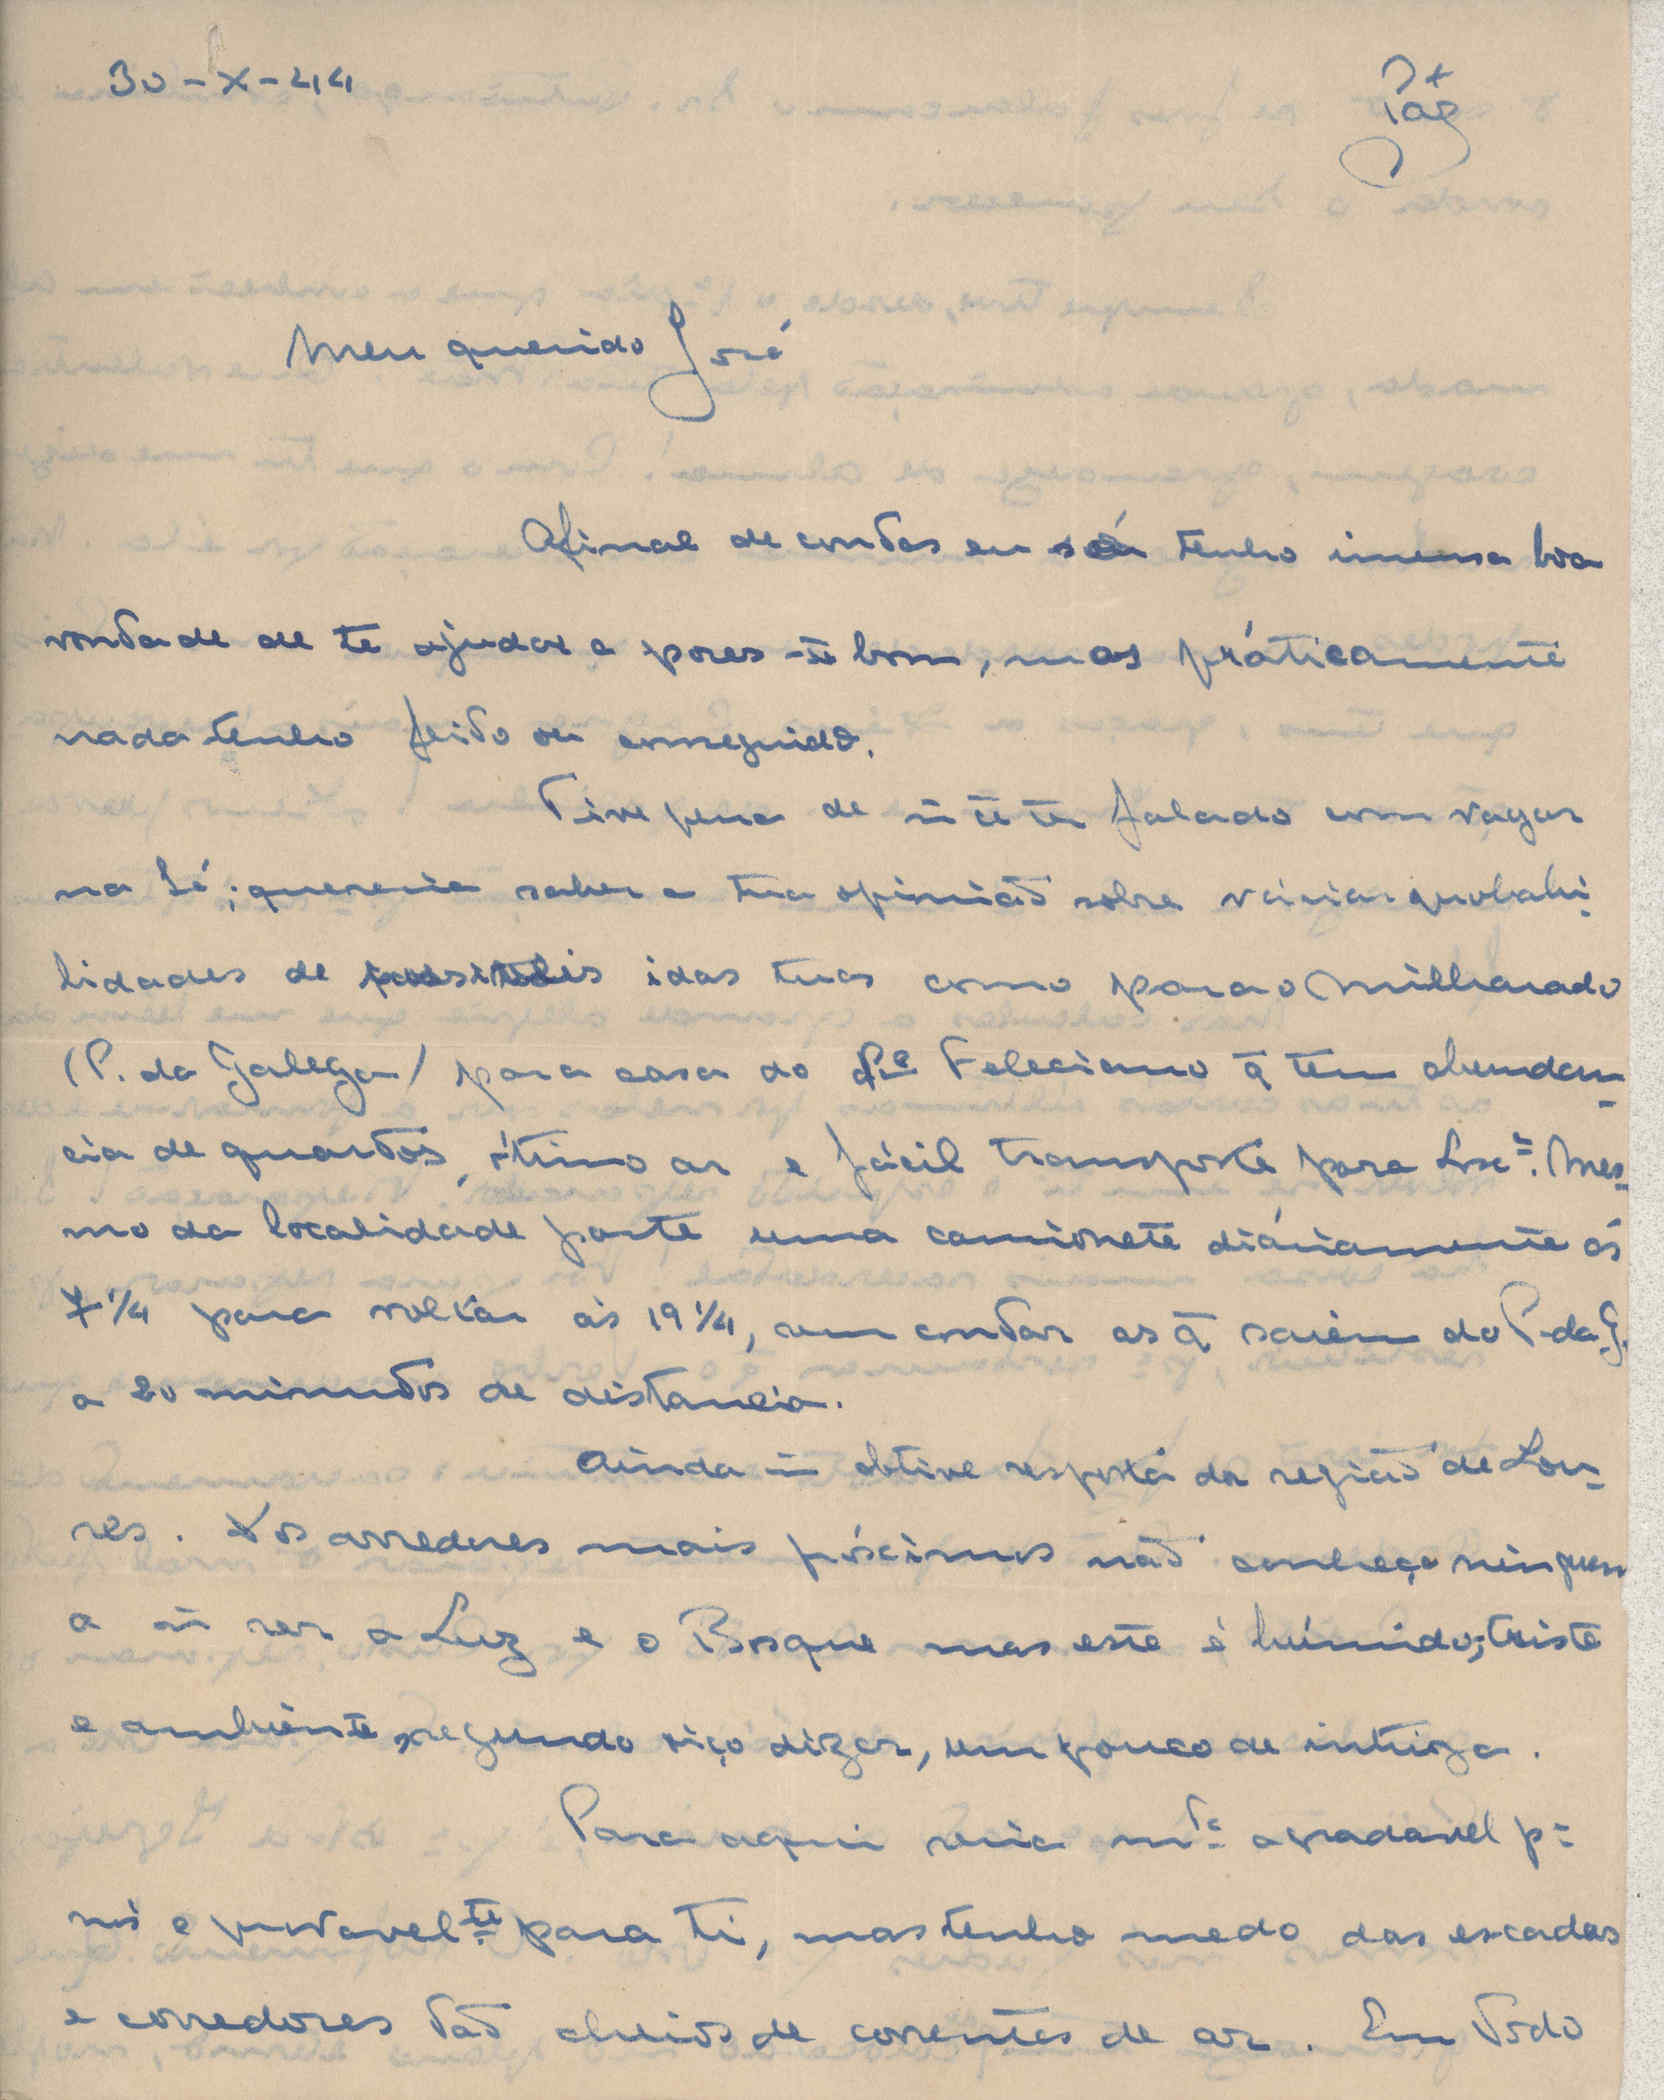 30-X-44
Pax
Meu querido José
Afinal de contas eu só tenho imensa boa
vontade de te ajudar a pores-te bom, mas práticamente
nada tenho feito ou conseguido.
Tive pena de ñ te ter falado com vagar
na Sé; quereria saber a tua opinião sobre várias probabi-
lidades de possiveis idas tuas como para o Milharado
(P. da Galega) para casa do Pe. Feleciano q̃ tem abundan-
cia de quartos, ótimo ar e fácil transporte para Lxª. Mes-
mo da localidade parte uma camionete diáriamente ás
7 1/4 para voltar ás 19 1/4, sem contar as q̃ saiem do P. da G.
a 20 minutos de distancia.
Ainda ñ obtive resposta da região de Lou-
res. Nos arredores mais próximos não conheço ninguem
a ñ ser a Luz e o Bosque mas este é húmido, triste
e ambiente, segundo oiço dizer, um pouco de intriga.
Para aqui seria mtº agradavel pª
nós e provavelte. para ti, mas tenho medo das escadas
e corredores tão cheios de correntes de ar. Em todo